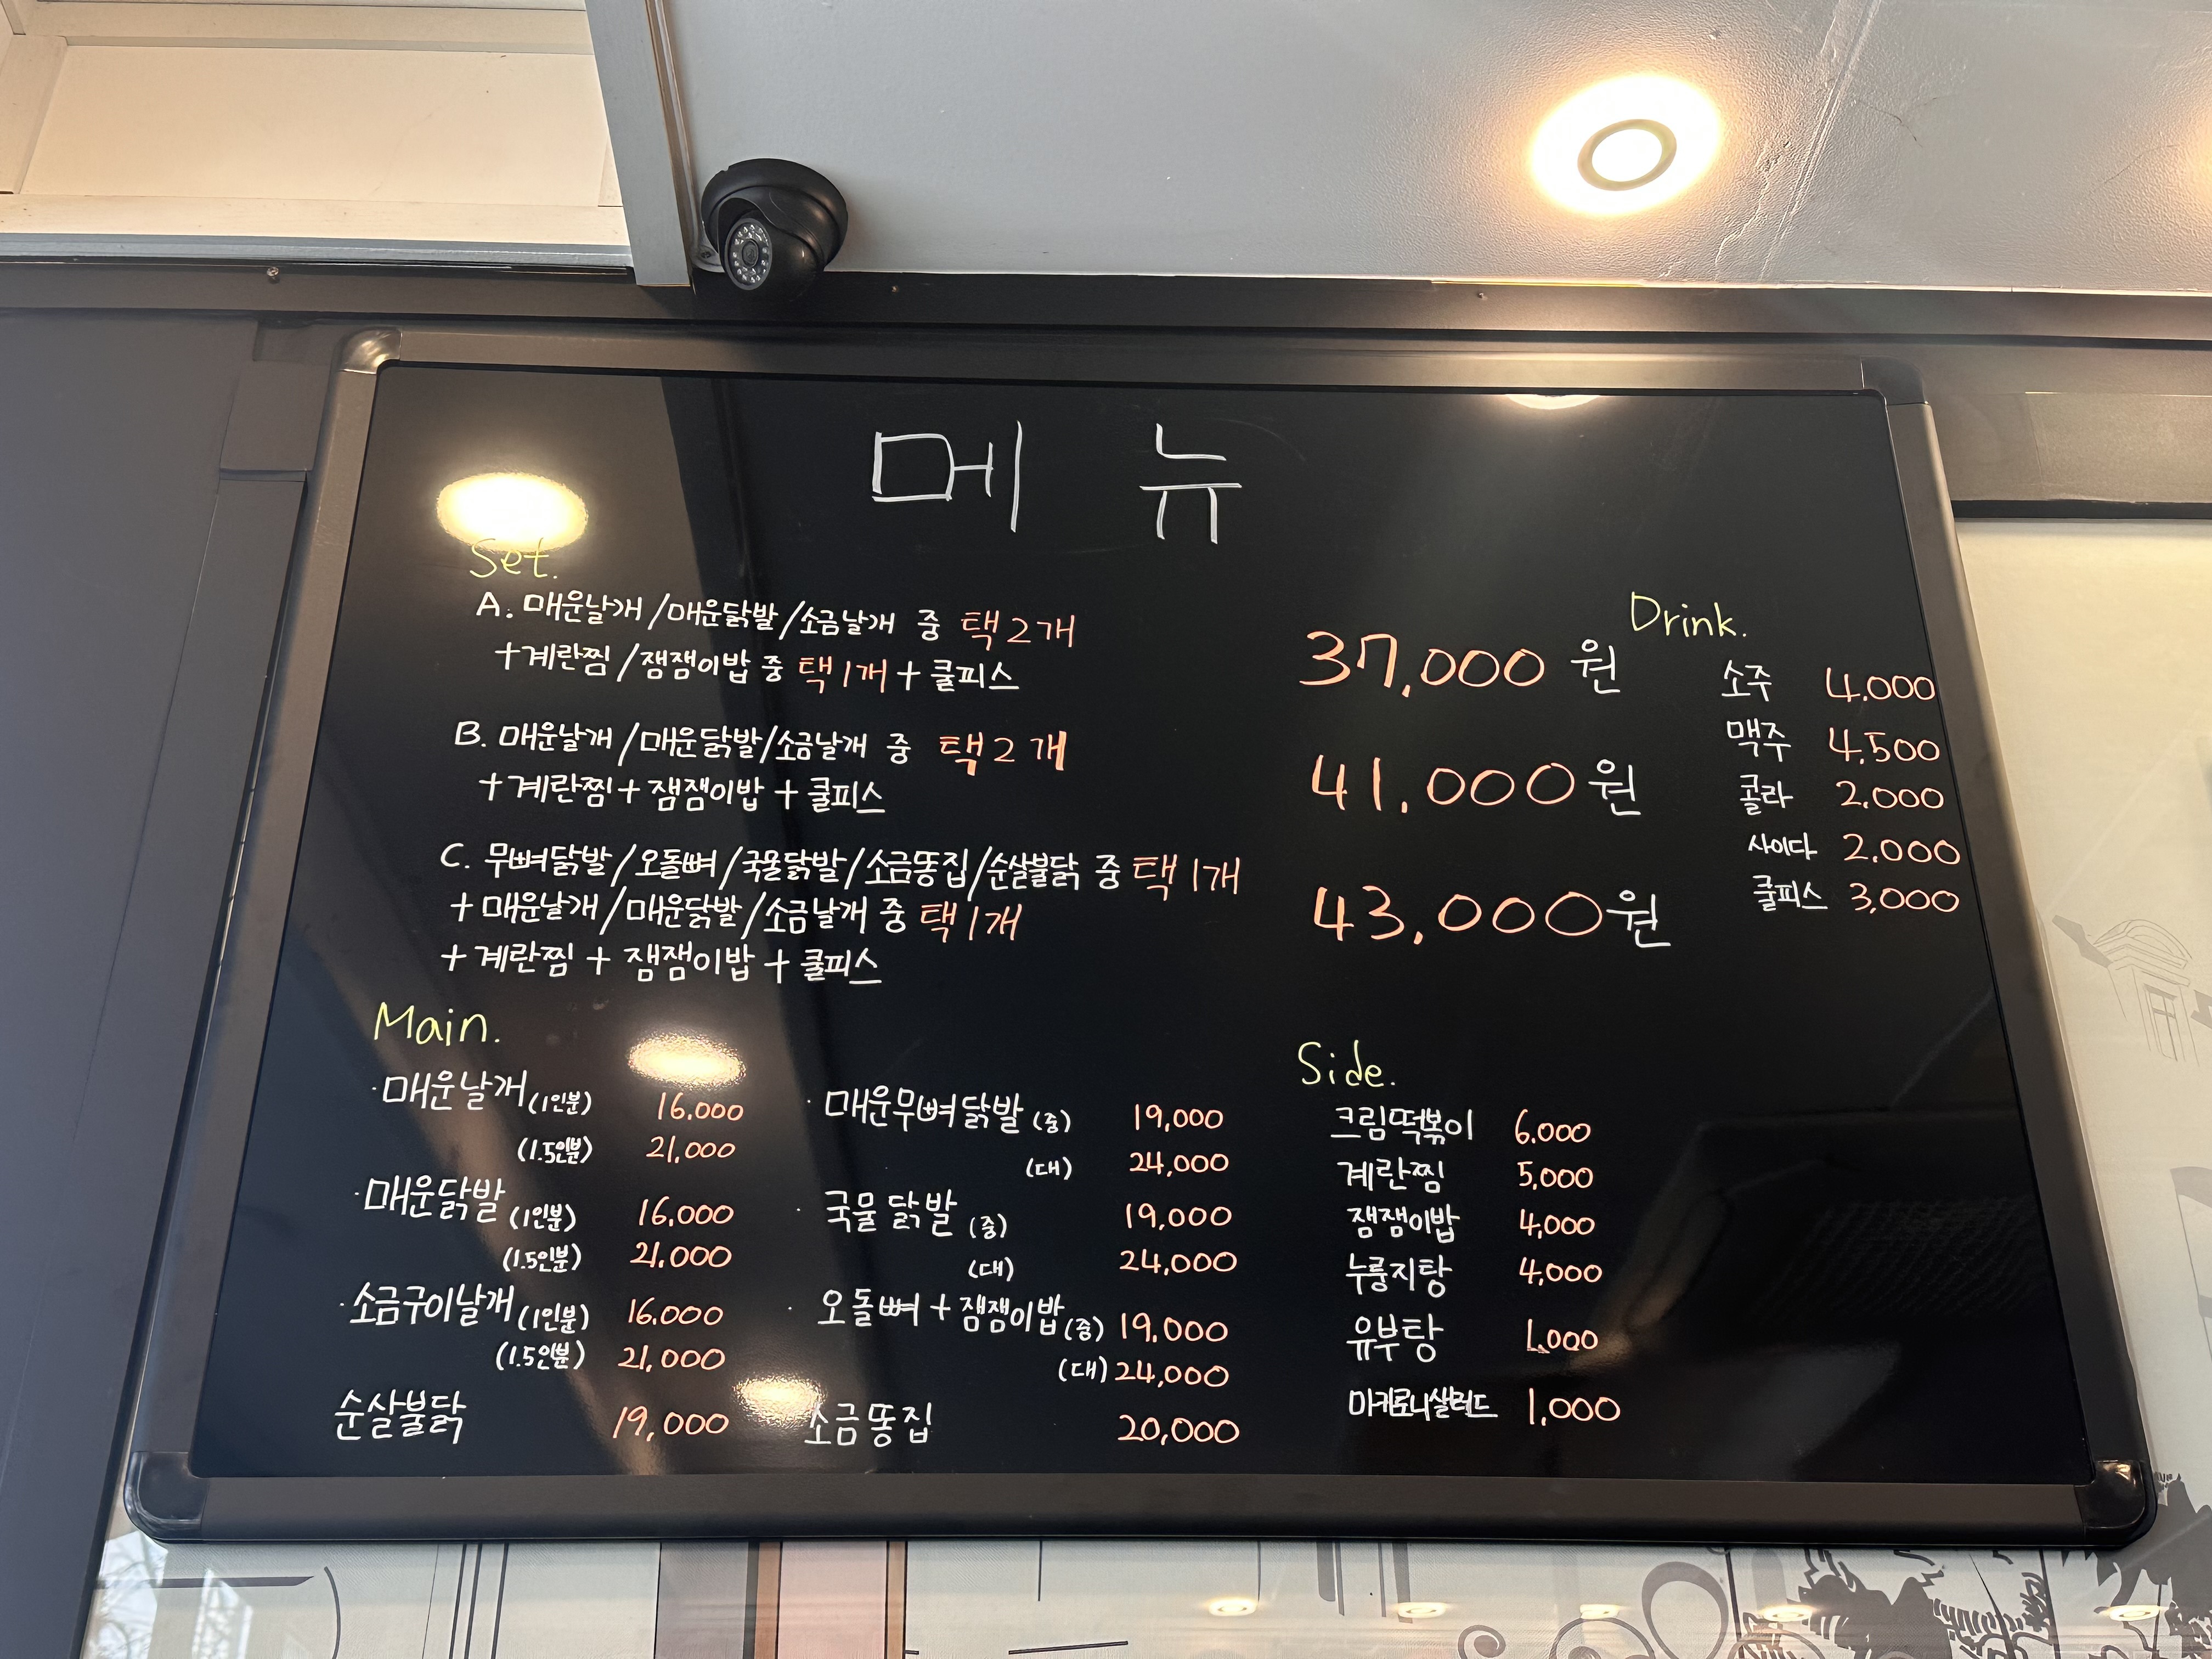 메뉴
Set.
A. 매운날개/매운닭발/소금날개 중 택2개
+계란찜/잼잼이밥 중 택1개 + 쿨피스
37,000 원
B. 매운날개/매운닭발/소금날개 중 택2개
+계란찜+잼잼이밥+쿨피스
41,000원
C. 무뼈닭발/오돌뼈/국물닭발/소금똥집/순살불닭 중 택1개
+매운날개/매운닭발/소금날개 중 택1개
+계란찜+잼잼이밥+쿨피스
43,000원
Drink.
소주 4,000
맥주 4,500
콜라 2,000
사이다 2,000
쿨피스 3,000
Main.
·매운날개(1인분) 16,000
(1.5인분) 21,000
·매운닭발(1인분) 16,000
(1.5인분) 21,000
·소금구이날개(1인분) 16,000
(1.5인분) 21,000
순살불닭 19,000
·매운무뼈닭발(중) 19,000
(대) 24,000
·국물닭발(중) 19,000
(대) 24,000
·오돌뼈+잼잼이밥(중) 19,000
(대) 24,000
소금똥집 20,000
Side.
크림떡볶이 6,000
계란찜 5,000
잼잼이밥 4,000
누룽지탕 4,000
유부탕 1,000
마카로니샐러드 1,000